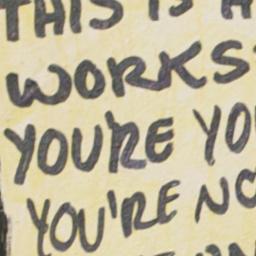 THIS IS A
WORKS
YOU'RE YO
YOU'RE NO